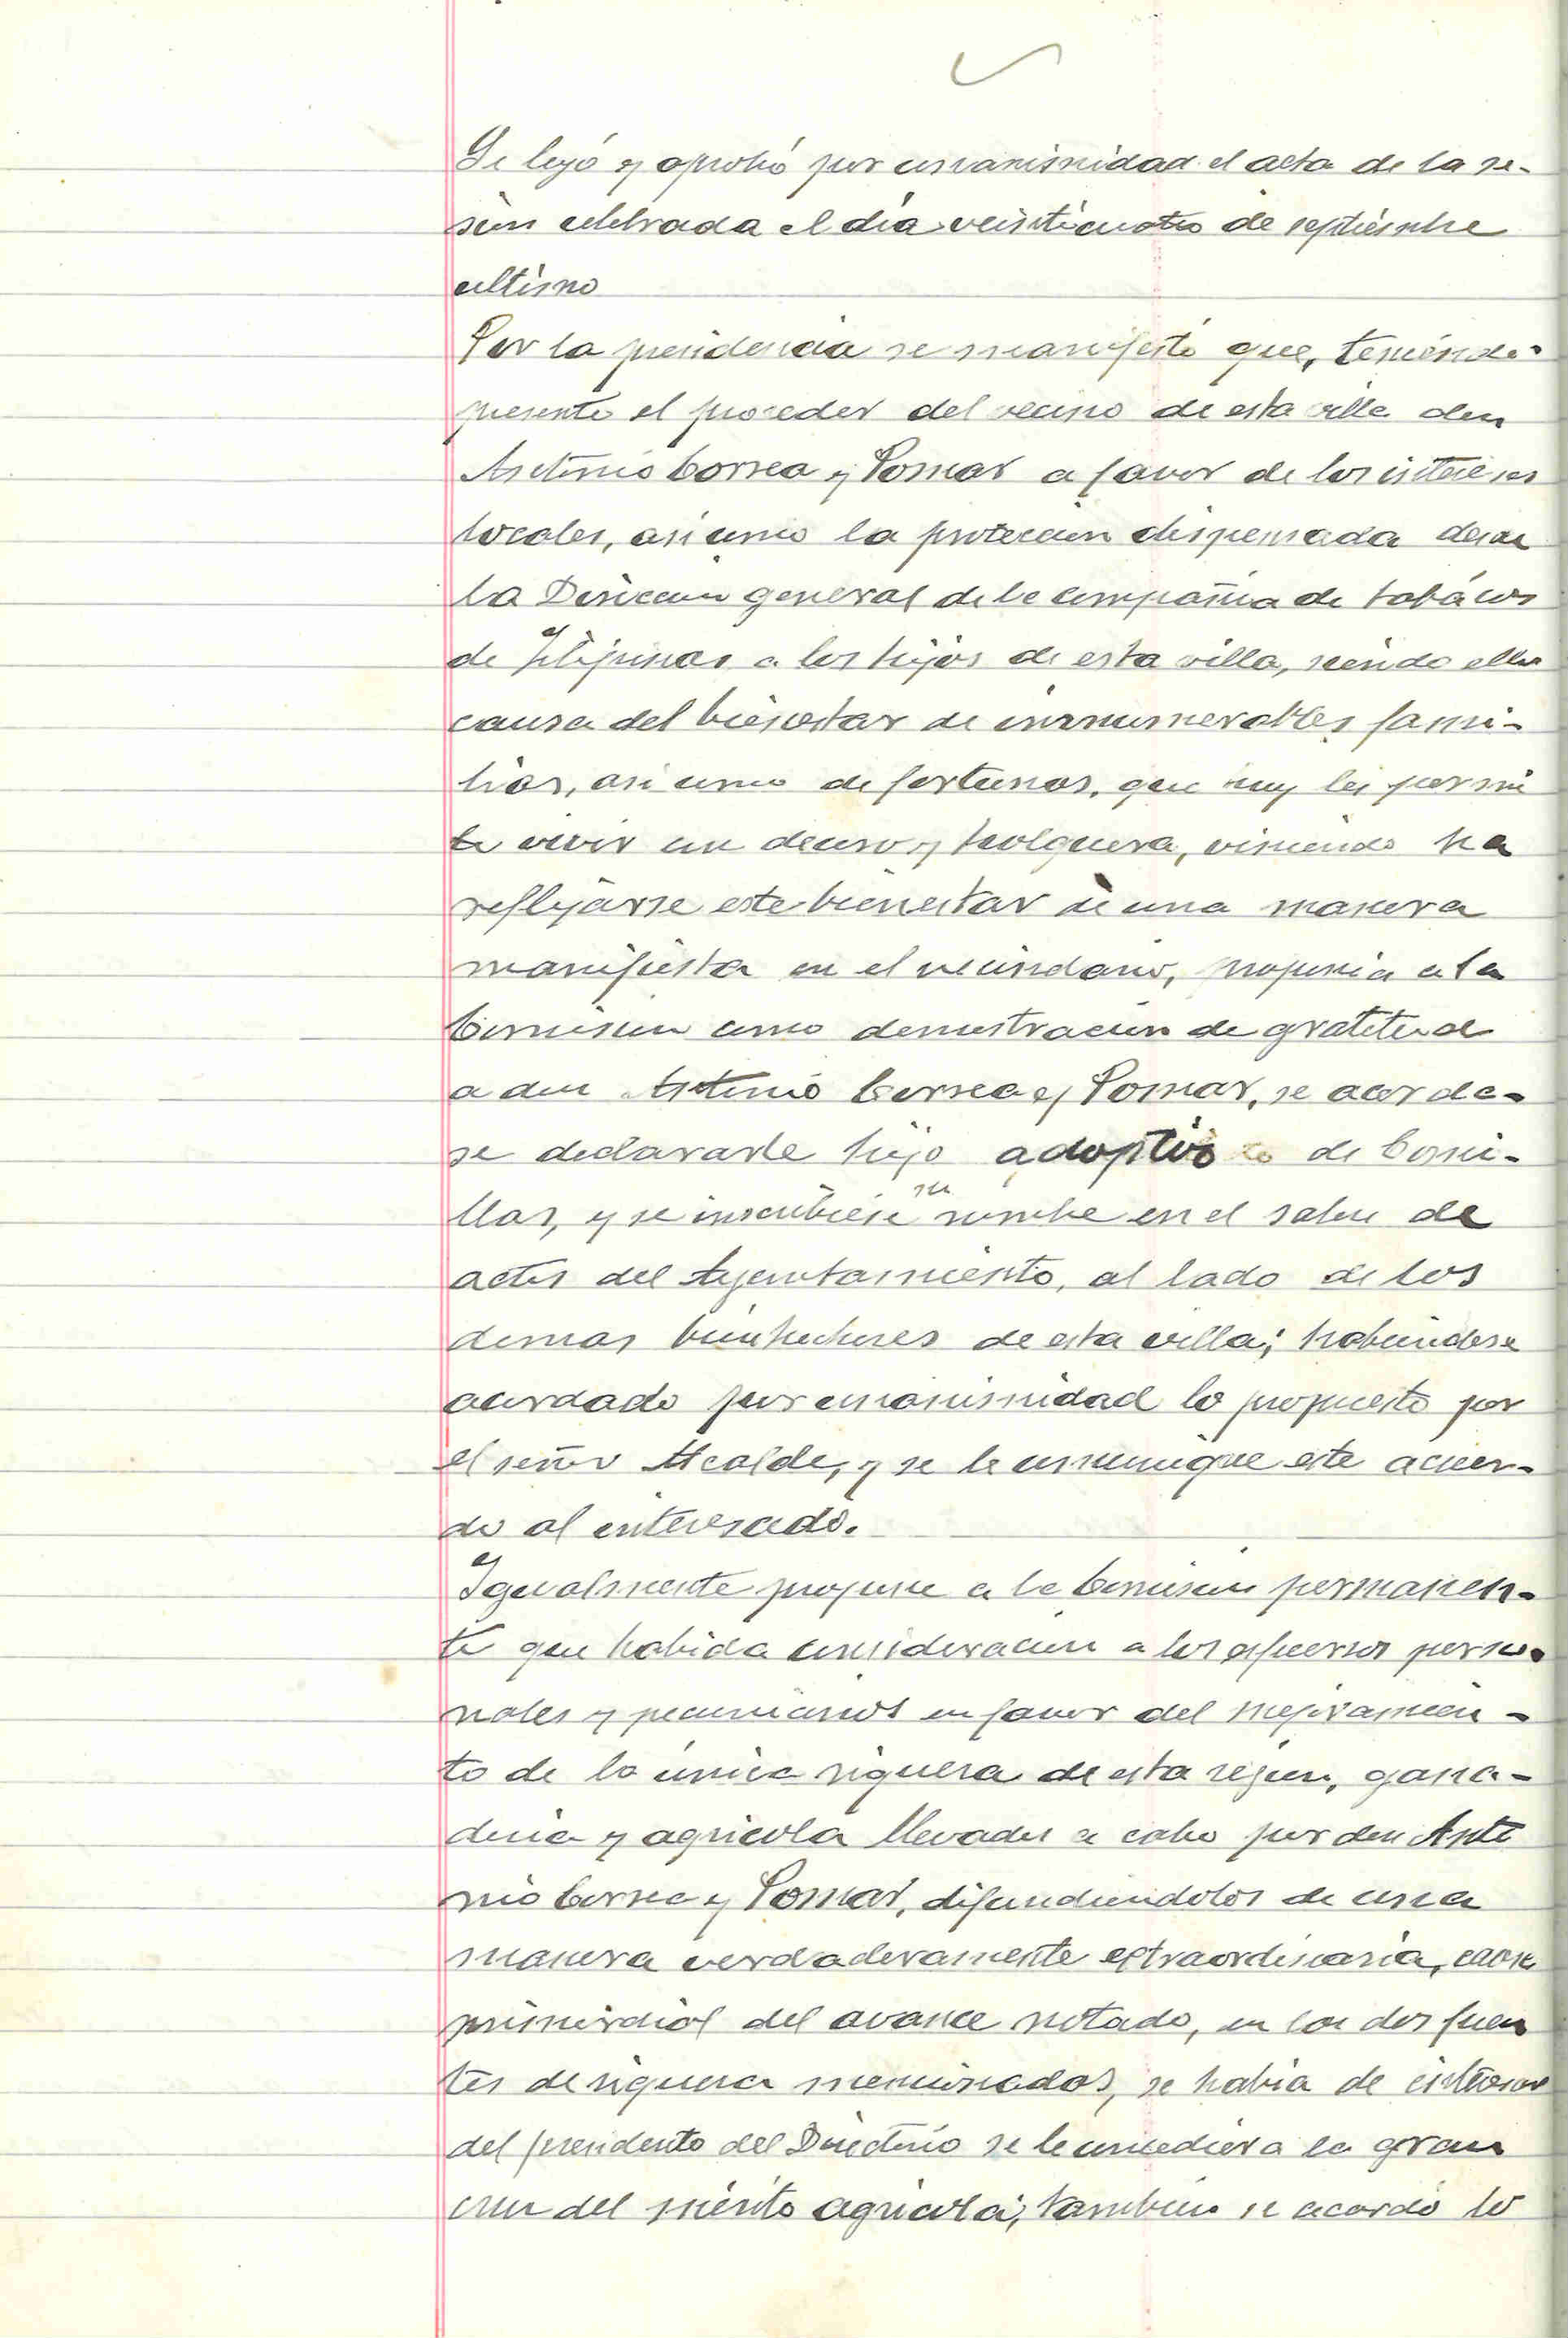 Se leyó y aprobó por unanimidad el acta de la se-
sión celebrada el día veinticuatro de septiembre
ultimo
Por la presidencia se manifestó que, teniendo
presente el proceder del vecino de esta villa don
Antonio Correa y Pomar a favor de los intereses
locales, asi como la proteccion dispensada desde
la Direccion general de la compañia de tabácos
de Filipinas a los hijos de esta villa, siendo ello
causa del bienestar de innumerables fami-
lias, asi como de fortunas, que hoy les permi
te vivir con decoro y holguera, viniendo ha
reflejarse este bienestar de una manera
manifiesta en el vecindario, proponia a la
Comision como demostracion de gratitud
a don Antonio Correa y Pomar, se acorda-
se declararle hijo adoptivo de Comi-
llas, y se inscribiese su nombre en el salon de
actos del Ayuntamiento, al lado de los
demas bienhechores de esta villa; habiendose
acordado por unanimidad lo propuesto por
el señor Alcalde, y se le comunique este acuer-
do al interesado.
Igualmente propone a la Comision permanen-
te que habida consideracion a los esfuerzos perso-
nales y pecuniarios en favor del mejoramien-
to de la única riquera de esta region, gana-
deria y agricola llevados a cabo por don Anto
nio Correa y Pomar, difundiendolos de una
manera verdaderamente extraordinaria, causa
primordial del avance notado, en las dos fuen
tes de riquera mencionadas, se habia de interesar
del presidente del Directorio se le concediera la gran
cruz del mérito agricola; tambien se acordó lo